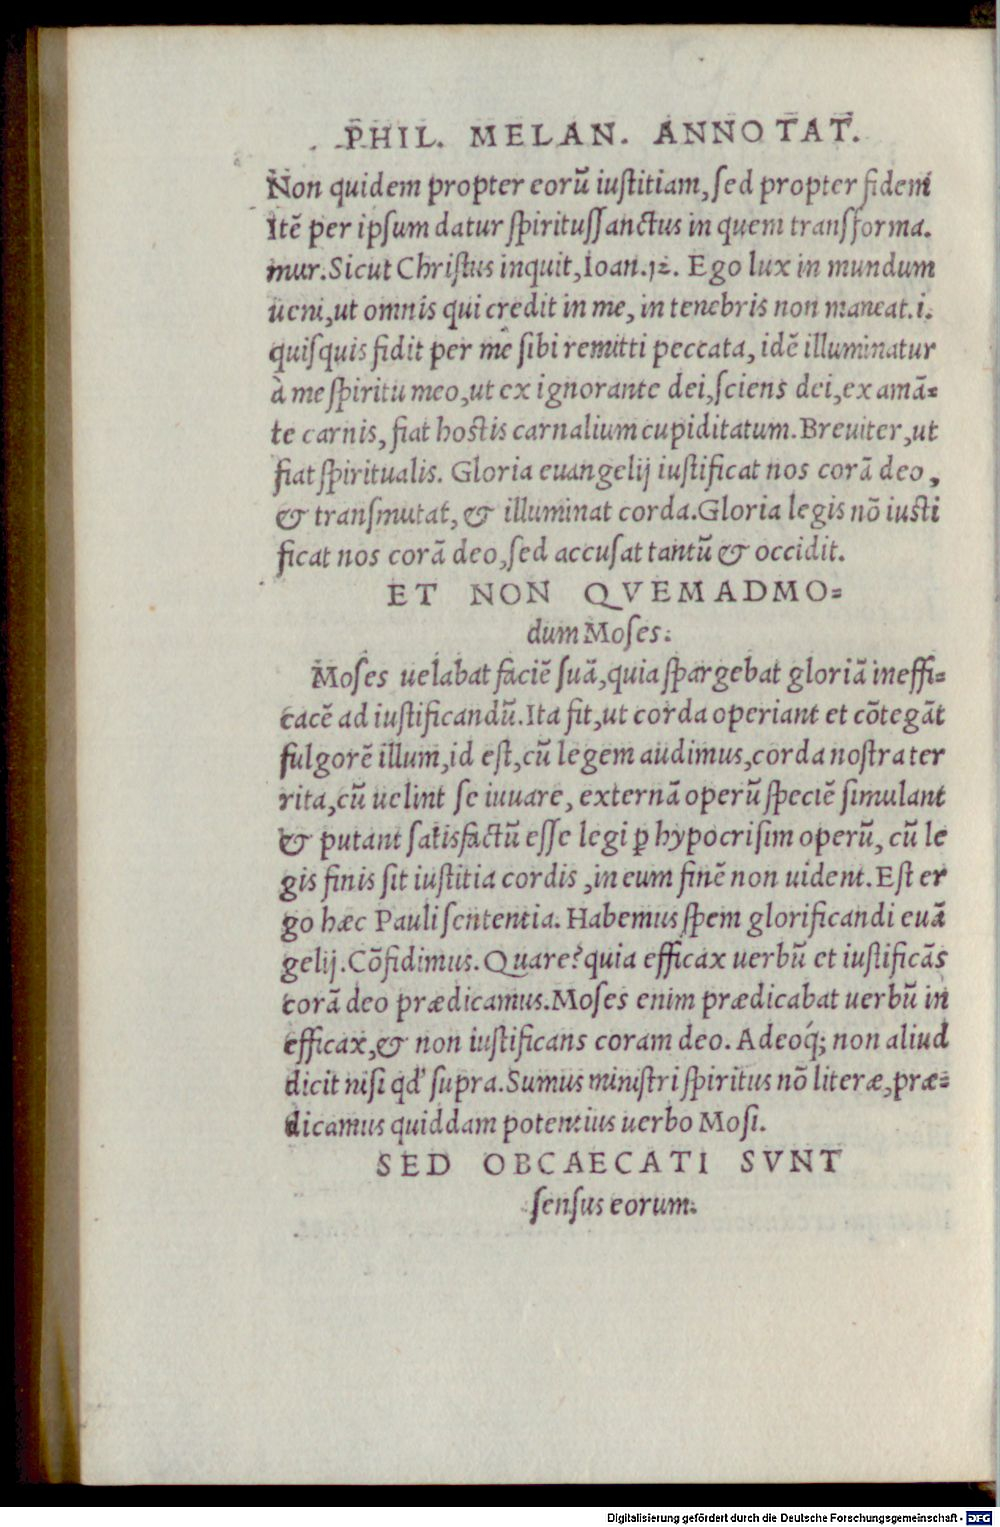 PHIL. MELAN. ANNOTAT.
Non quidem propter eorũ iuſtitiam, ſed propter fidem
Itẽ per ipſum datur ſpirituſſanctus in quem transforma.
mur. Sicut Chriſtus inquit, Ioan.12. Ego lux in mundum
ueni, ut omnis qui credit in me, in tenebris non maneat. i.
quiſquis fidit per me ſibi remitti peccata, idẽ illuminatur
à me ſpiritu meo, ut ex ignorante dei, ſciens dei, ex amã⸗
te carnis, fiat hoſtis carnalium cupiditatum. Breuiter, ut
fiat ſpiritualis. Gloria euangelij iuſtificat nos corã deo,
& tranſmutat, & illuminat corda. Gloria legis nõ iuſti
ficat nos corã deo, ſed accuſat tantũ & occidit.
ET NON QVEMADMO⸗
dum Moſes.
Moſes uelabat faciẽ ſuã, quia ſpargebat gloriã ineffi⸗
cacẽ ad iuſtificandũ. Ita fit, ut corda operiant et cõtegãt
fulgorẽ illum, id eſt, cũ legem audimus, corda noſtra ter
rita, cũ uelint ſe iuuare, externã operũ ſpeciẽ ſimulant
& putant ſatisfactũ eſſe legi ꝑ hypocriſim operũ, cũ le
gis finis ſit iuſtitia cordis, in eum finẽ non uident. Eſt er
go hæc Pauli ſententia. Habemus ſpem glorificandi euã
gelij. Cõfidimus. Quare? quia efficax uerbũ et iuſtificãs
corã deo prædicamus. Moſes enim prædicabat uerbũ in
efficax, & non iuſtificans coram deo. Adeoq́; non aliud
dicit niſi qd' ſupra. Sumus miniſtri ſpiritus nõ literæ, præ⸗
dicamus quiddam potentius uerbo Moſi.
SED OBCAECATI SVNT
ſenſus eorum.
Digitalisierung gefördert durch die Deutsche Forschungsgemeinschaft - DFG